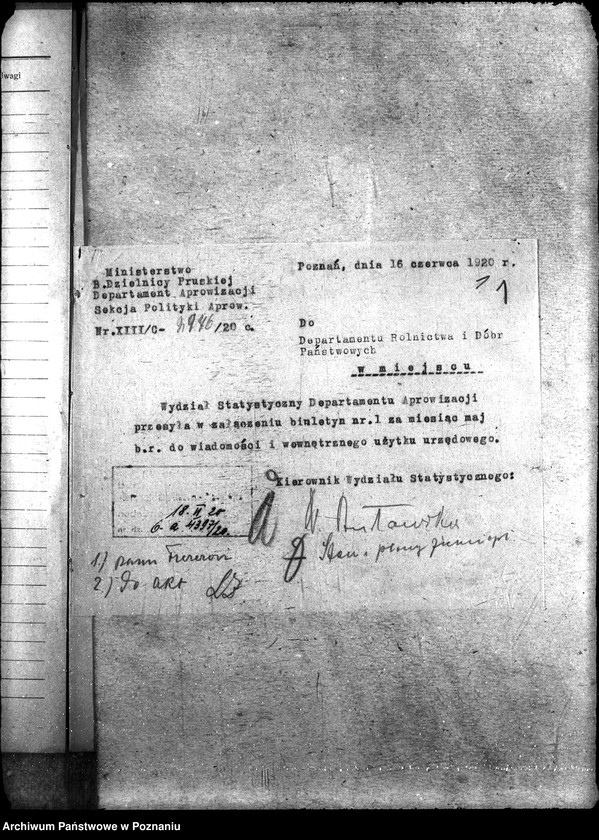 wagi
Ministerstwo
B.Dzielnicy Pruskiej
Departament Aprowizacji
Sekcja Polityki Aprow.
Nr.XIII/C- /20 c.
Poznań, dnia 16 czerwca 1920 r.
Do
Departamentu Rolnictwa i Dóbr
Państwowych
w miejscu
Wydział Statystyczny Departamentu Aprowizacji
przesyła w załączeniu biuletyn nr.1 za miesiąc maj
b.r. do wiadomości i wewnętrznego użytku urzędowego.
Kierownik Wydziału Statystycznego:
1) panu
2) Do akt
Archiwum Państwowe w Poznaniu